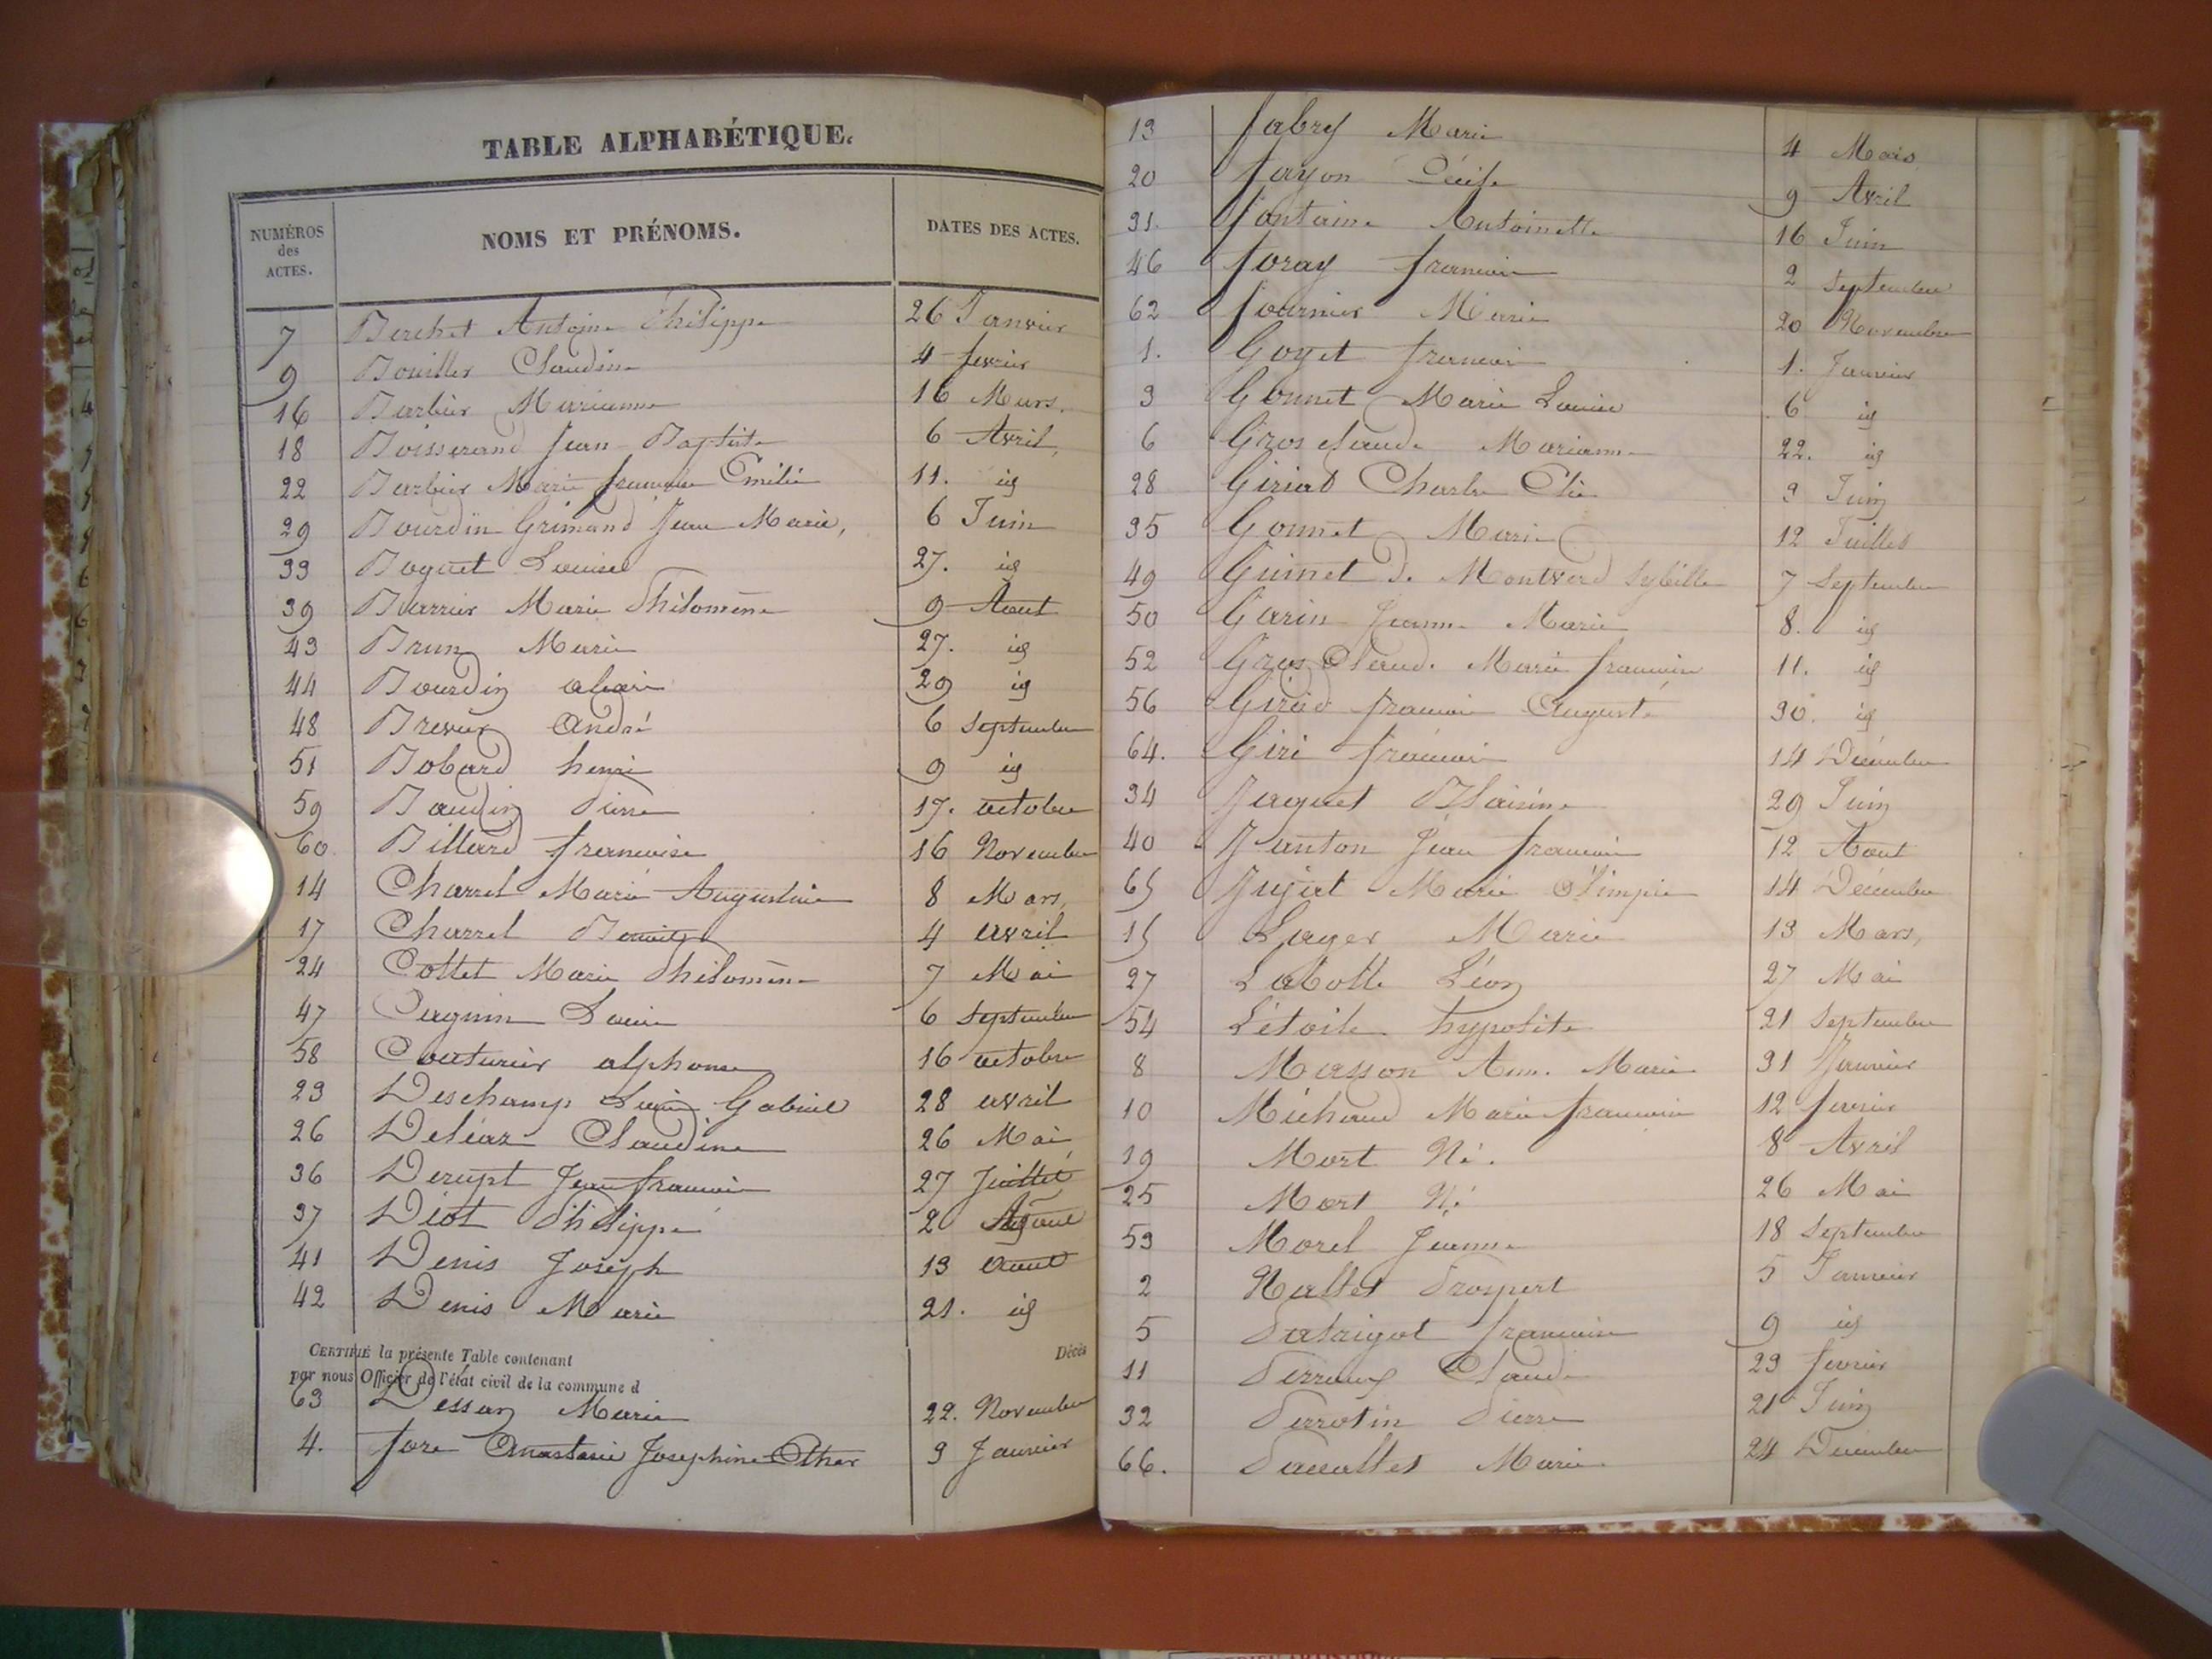 TABLE ALPHABÉTIQUE.
NUMÉROS des ACTES. NOMS ET PRÉNOMS. DATES DES ACTES.
7 Berchet Antoine Philippe 26 Janvier
9 Bouiller Claudine 4 fevrier
16 Barbier Marianne 16 Mars.
18 Boisserand Jean Baptiste 6 Avril,
22 Barbier Marie francoise Emilie 11. id
29 Bourdin Grimand Jean Marie, 6 Juin
33 Boguet Louise 27. id
39 Barrier Marie Philomène 9 Aout
43 Brun Marie 27. id
44 Bourdin 29 id
48 Brevet André 6 Septembre
51 Bobard henri 9 id
59 Baudin Pierre 17. octobre
60 Billard francoise 16 Novembre
14 Charrel Marie Augustine 8 Mars,
17 Charrel Benoit 4 avril
24 Cottet Marie Philomène 7 Mai
47 Cagnin 6 Septembre
58 Couturier alphonse 16 octobre
23 Deschamp Gabriel 28 avril
26 Deléaz Claudine 26 Mai
36 Derupt Jean francois 27 Juillet
37 Diot Philippe 2 Aout
41 Denis Joseph 13 Aout
42 Denis Marie 21. id
CERTIFIÉ la présente Table contenant Décès
par nous Officier de l'état civil de la commune d
63 Dessay Marie 22. Novembre
4. fore Anastasie Josephine Esther 3 Janvier
13 fabry Marie 4 Mars
20 fayon Cécile 9 Avril
31. fontaine Antoinette 16 Juin
46 foray francois 2 Septembre
62 fournier Marie 20 Novembre
1. Goyet francois 1. Janvier
3 Gonnet Marie Louise 6 id
6 Gros claude Marianne 22. id
28 Giriat Charles Elie 3 Juin
35 Gonnet Marie 12 Juillet
49 Guinet de Montverd Sybille 7 Septembre
50 Garin Jeanne Marie 8. id
52 Gros Claude Marie francoise 11. id
56 Girod francois Auguste 30. id
64. Giri francois 14 Décembre
34 Jaquet Blaisine 29 Juin
40 Janton Jean francois 12 Aout
65 Jujat Marie Olimpie 14 Décembre
15 Lager Marie 13 Mars,
27 Labolle Léon 27 Mai
54 Létoile hypolite 21 Septembre
8 Masson Anne Marie 31 Janvier
10 Michaud Marie francoise 12 fevrier
19 Mort Né. 8 Avril
25 Mort Né 26 Mai
53 Morel Jeanne 18 Septembre
2 Nallet Prospert 5 Janvier
5 Patrigot francoise 9 id
11 Perraux Claude 23 fevrier
32 Perrotin Pierre 21 Juin
66. Marie 24 Decembre